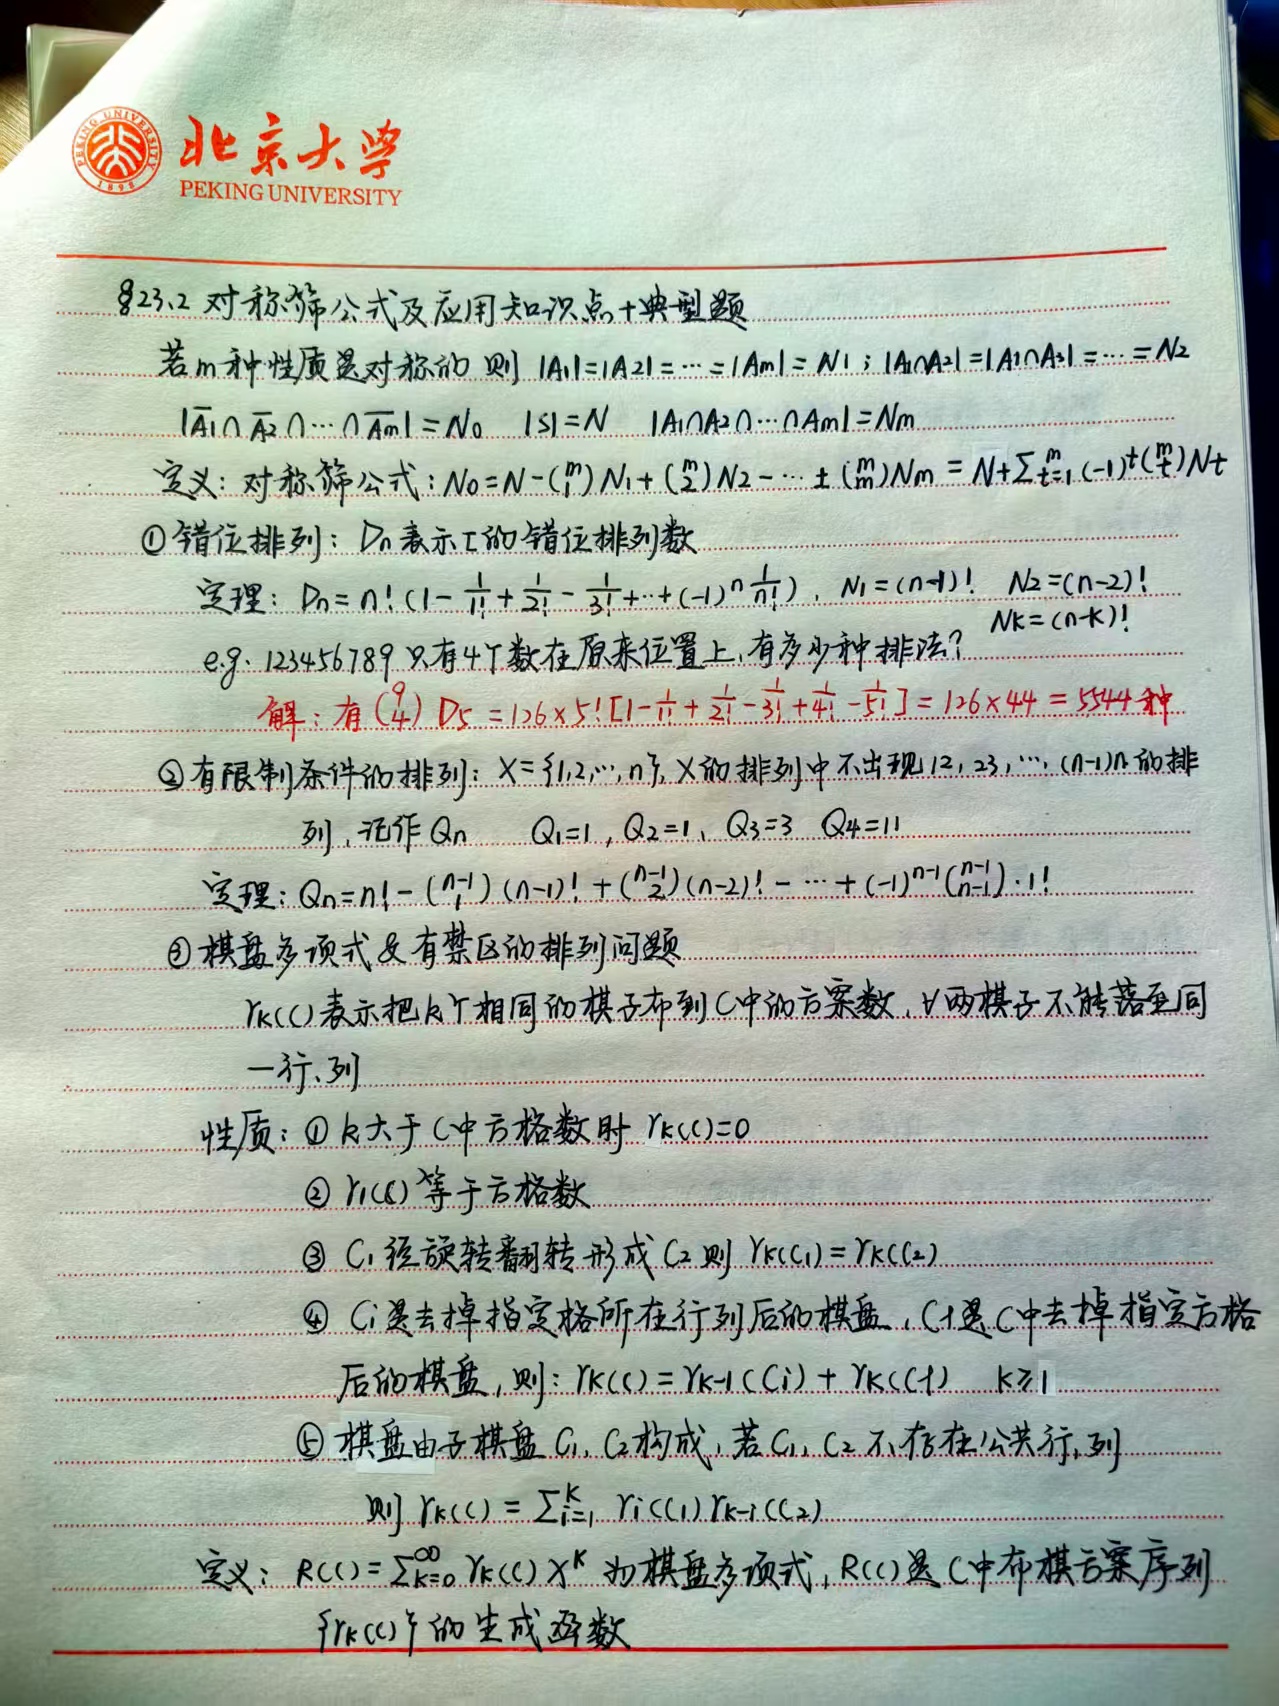 PEKING UNIVERSITY
1898
北京大学
PEKING UNIVERSITY
§23.2 对称筛公式及应用知识点+典型题
若m种性质是对称的 则 |A1|=|A2|=…=|Am|=N1；|A1∩A2|=|A1∩A3|=…=N2
|A̅1∩A̅2∩…∩A̅m|=N0 |S|=N |A1∩A2∩…∩Am|=Nm
定义：对称筛公式：N0=N-(m 1)N1+(m 2)N2-…±(m m)Nm=N+∑_{t=1}^{m}(-1)^t(m t)Nt
①错位排列：Dn表示I的错位排列数
定理：Dn=n!(1-1/1!+1/2!-1/3!+…+(-1)^n 1/n!)，N1=(n-1)! N2=(n-2)!
NK=(n-k)!
e.g. 123456789只有4个数在原来位置上，有多少种排法？
解：有(9 4)D5=126×5![1-1/1!+1/2!-1/3!+1/4!-1/5!]=126×44=5544种
②有限制条件的排列：X={1,2,…,n}，X的排列中不出现12，23，…，(n-1)n的排
列，记作Qn Q1=1，Q2=1，Q3=3 Q4=11
定理：Qn=n!-(n-1 1)(n-1)!+(n-1 2)(n-2)!-…+(-1)^{n-1}(n-1 n-1)·1!
③棋盘多项式&有禁区的排列问题
rK(C)表示把k个相同的棋子布到C中的方案数，∀两棋子不能落至同
一行、列
性质：①k大于C中方格数时 rK(C)=0
②r1(C)等于方格数
③C1经旋转翻转形成C2则 rK(C1)=rK(C2)
④Ci是去掉指定格所在行列后的棋盘，Ct是C中去掉指定方格
后的棋盘，则：rK(C)=rK-1(Ci)+rK(Ct) K≥1
⑤棋盘由子棋盘C1，C2构成，若C1，C2不存在公共行，列
则 rK(C)=∑_{i=1}^{K} ri(C1)rK-i(C2)
定义：R(C)=∑_{K=0}^{∞} rK(C)X^K 为棋盘多项式，R(C)是C中布棋方案序列
{rK(C)}的生成函数